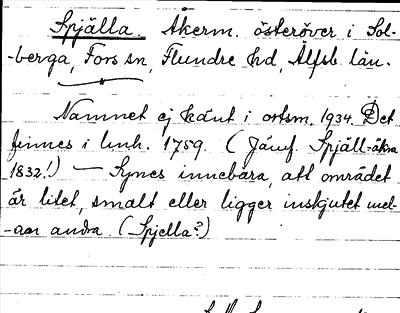 Spjälla. Åkerm. österöver i Sol-
-berga, Fors sn, Flundre hd, Älfsb. län.
Namnet ej känt i ortsm. 1934. Det
finnes i lmh. 1759. (Jämf. Spjäll-åkra
1832!) — Synes innebära, att området
är litet, smalt eller ligger inskjutet mel-
-an andra. (Spjella?)